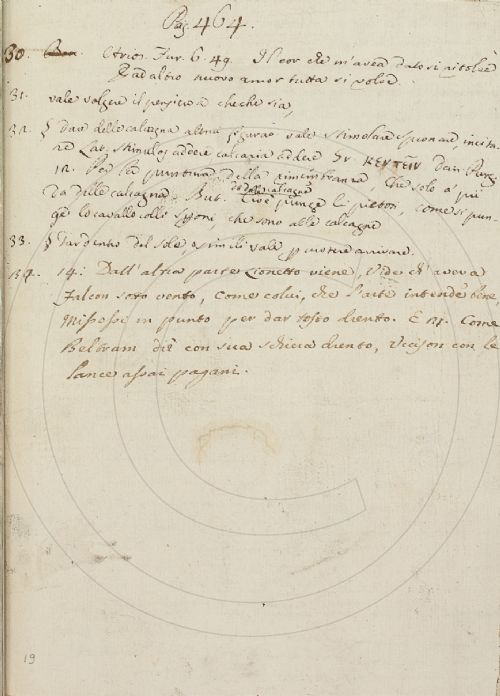 Pag. 464.
30. Arios. Fur. 6. 49. Il cor che m'avea dato si ritolse
E ad altro nuovo amor tutta si volse.
31. vale volgere il pensiero a che che sia,
32. § dare delle calcagna altrui figurato vale stimolare spronare, incita-
re Lat. stimulos addere calcaria addere Gr. κεντεῖν Dan. Purg.
12. Per la puntura della rimembranza, Che solo a' pii
dà delle calcagne. But.
Cioè punge li pietosi, come si pun-
ge lo cavallo colli sproni, che sono alle calcagne
33. § Dar dentro del sole, e simili vale
34. 14: Dall' altra parte Lionetto viene, Vide ch' aveva
Falcon sotto vento, come colui, che l'arte intende bene
Missesse in punto per dar tosto drento. E 17. Come
Beltram diè con sua schiera drento, Uccison con le
lance assai pagani.
19